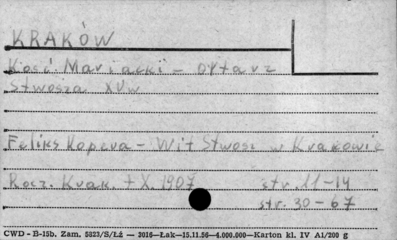 KRAKÓW
Kość Mariacki - ołtarz
Stwosza XVw
Feliks Kopera - Wit Stwosz w Krakowie
Rocz. Krak. t X. 1907 str. 11-14
str. 30-67
CWD - B-15b. Zam. 5823/S/Łż — 2016—Łak—15.11.56—4.000.000—Karton kl. IV A1/200 g